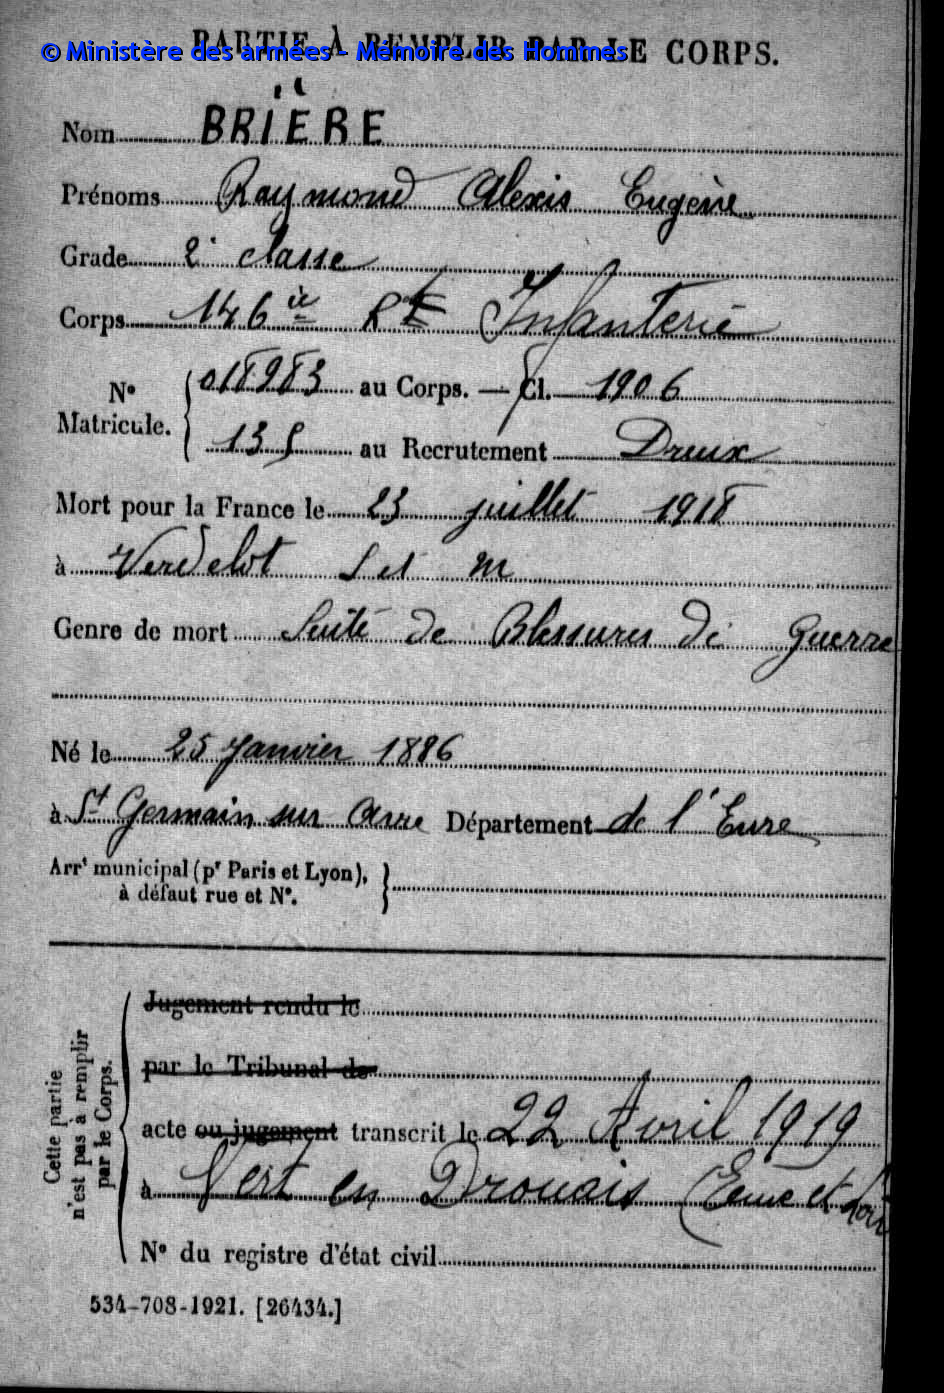 PARTIE À REMPLIR PAR LE CORPS.
© Ministère des armées - Mémoire des Hommes
Nom BRIÈRE
Prénoms Raymond Alexis Eugène
Grade 2e classe
Corps 146 ie Rt Infanterie
No 018983 au Corps. — Cl. 1906
Matricule. 135 au Recrutement Dreux
Mort pour la France le 23 juillet 1918
à Verdelot S et M
Genre de mort Suite de Blessures de Guerre
Né le 25 Janvier 1886
à St Germain sur Avre Département de l'Eure
Arrt municipal (pr Paris et Lyon),
à défaut rue et No.
Cette partie
n'est pas à remplir
par le Corps.
Jugement rendu le
par le Tribunal de
acte ou jugement transcrit le 22 Avril 1919
à Vert en Drouais (Eure et Loir
No du registre d'état civil
534-708-1921. [26434.]